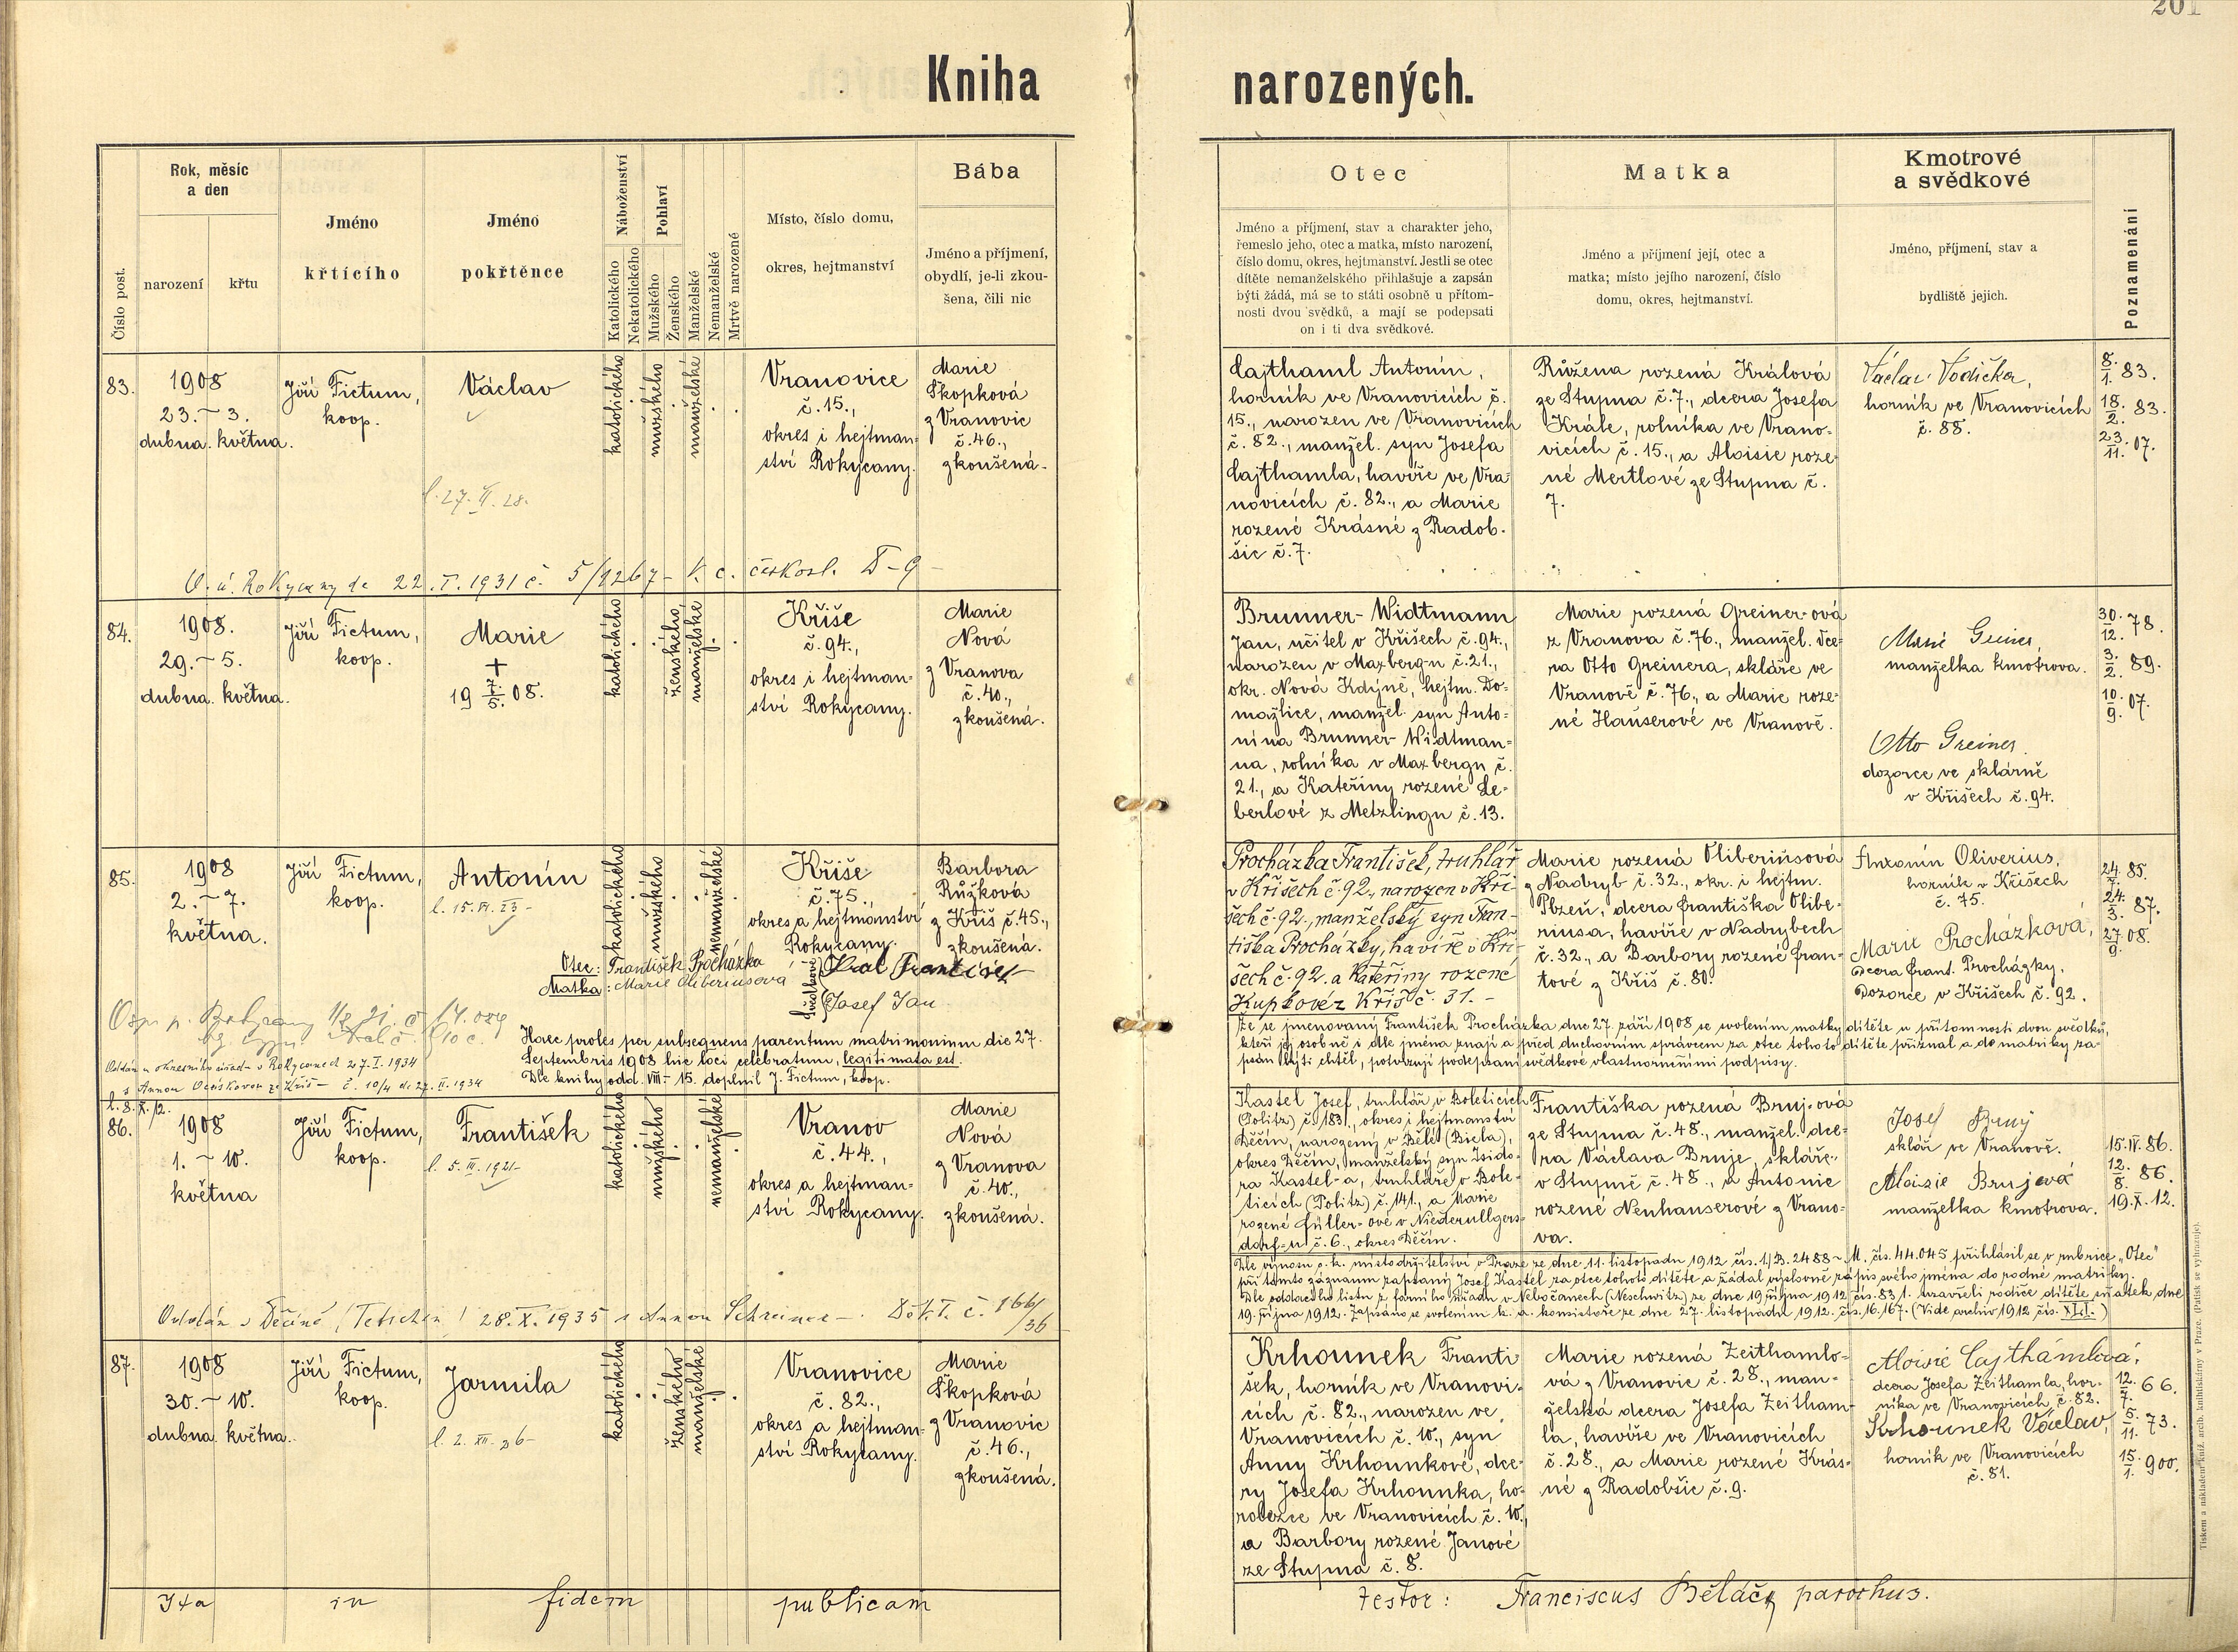 201
Kniha narozených.
Číslo post.
Rok, měsíc
a den
narození
křtu
Jméno
křtícího
Jméno
pokřtěnce
Náboženství
Katolického
Nekatolického
Pohlaví
Mužského
Ženského
Manželské
Nemanželské
Mrtvě narozené
Místo, číslo domu,
okres, hejtmanství
Bába
Jméno a příjmení,
obydlí, je-li zkou-
šena, čili nic
Otec
Jméno a příjmení, stav a charakter jeho,
řemeslo jeho, otec a matka, místo narození,
číslo domu, okres, hejtmanství. Jestli se otec
dítěte nemanželského přihlašuje a zapsán
býti žádá, má se to státi osobně u přítom-
nosti dvou svědků, a mají se podepsati
on i ti dva svědkové.
Matka
Jméno a příjmení její, otec a
matka; místo jejího narození, číslo
domu, okres, hejtmanství.
Kmotrové
a svědkové
Jméno, příjmení, stav a
bydliště jejich.
Poznamenání
83.
1908
23. ~ 3.
dubna. května.
Jiří Fictum,
koop.
Václav
katolického
mužského
manželské
Vranovice
č. 15.,
okres i hejtman-
ství Rokycany.
Marie
Škopková
z Vranovic
č. 46.,
zkoušená.
Cajthaml Antonín,
horník ve Vranovicích č.
15., narozen ve Vranovicích
č. 82., manžel. syn Josefa
Cajthamla, havíře ve Vra-
novicích č. 82., a Marie
rozené Krásné z Radob-
šic č. 7.
Růžena rozená Králová
ze Stupna č. 7., dcera Josefa
Krále, rolníka ve Vrano-
vicích č. 15., a Aloisie roze-
né Mertlové ze Stupna č.
7.
Václav Vodička,
horník ve Vranovicích
č. 88.
8./1. 83.
18./2. 83.
23./11. 07.
O. ú. Rokycany de 22. I. 1931 č. 5/1267 –
84.
1908.
29. ~ 5.
dubna. května.
Jiří Fictum,
koop.
Marie
+
19 7./5. 08.
katolického
ženského
manželské
Kříše
č. 94.,
okres i hejtman-
ství Rokycany.
Marie
Nová
z Vranova
č. 40.,
zkoušená.
Brunner-Widtmann
Jan, učitel v Kříšech č. 94.,
narozen v Maxberg-u č. 21.,
okr. Nová Kdýně, hejtm. Do-
mažlice, manžel. syn Anto-
nína Brunner-Widtman-
na, rolníka v Maxbergu č.
21., a Kateřiny rozené Le-
berlové z Metzlingu č. 13.
Marie rozená Greiner-ová
z Vranova č. 76., manžel. dce-
ra Otto Greinera, skláře ve
Vranově č. 76., a Marie roze-
né Hauserové ve Vranově.
Marie Greiner,
manželka kmotrova.
Otto Greiner.
dozorce ve sklárně
v Kříšech č. 94.
30./12. 78.
3./2. 89.
10./9. 07.
85.
1908
2. ~ 7.
května.
Jiří Fictum,
koop.
Antonín
katolického
mužského
nemanželské
Kříše
č. 75.,
okres a hejtmanství
Rokycany.
Barbora
Růžková
z Kříš č. 45.,
zkoušená.
Otec: František Procházka
Matka: Marie Oliberiusová
Svědkové
Král František
Josef Jan
Haec proles per subsequens parentum matrimonium die 27.
Septembris 1908 hic loci celebratum, legitimata est.
Dle knihy odd. VIII – 15. doplnil J. Fictum, koop.
Procházka František, truhlář
v Kříšech č. 92., narozen v Kří-
šech č. 92., manželský syn Fran-
tiška Procházky, havíře v Kří-
šech č. 92. a Kateřiny rozené
Kupkové z Kříš č. 31. –
Marie rozená Oliberiusová
z Nadryb č. 32., okr. i hejtm.
Plzeň, dcera Františka Olibe-
riusa, havíře v Nadrybech
č. 32., a Barbory rozené Fran-
tové z Kříš č. 80.
Antonín Oliverius,
horník v Kříšech
č. 75.
Marie Procházková,
dcera Frant. Procházky,
dozorce v Kříšech č. 92.
24./7. 85.
24./3. 87.
27./9. 08.
Že se jmenovaný František Procházka dne 27. září 1908 se svolením matky dítěte u přítomnosti dvou svědků,
kteří jej osobně i dle jména znají a před duchovním správcem za otce tohoto dítěte přiznal a do matriky za-
psán býti chtěl, potvrzují podepsaní svědkové vlastnoručními podpisy.
86.
1908
1. ~ 10.
května
Jiří Fictum,
koop.
František
l. 5. III. 1921 –
katolického
mužského
nemanželské
Vranov
č. 44.,
okres a hejtman-
ství Rokycany.
Marie
Nová
z Vranova
č. 40.,
zkoušená.
Kastel Josef, truhlář v Boleticích
(Politz) č. 183., okres i hejtmanství
Děčín, narozený v Bělé (Biela),
okres Děčín, manželský syn Isido-
ra Kastel-a, truhláře v Bole-
ticích (Politz) č. 141., a Marie
rozené Füller-ové v Niederullgers-
dorf-u č. 6., okres Děčín.
Františka rozená Bruj-ová
ze Stupna č. 48., manžel. dce-
ra Václava Bruje, skláře
v Stupně č. 48., a Antonie
rozené Neuhauserové z Vrano-
va.
Josef Bruj
sklář ve Vranově.
Aloisie Brujová
manželka kmotrova.
15. IV. 86.
12./8. 86.
19. X. 12.
Dle výnosu c. k. místodržitelství v Praze ze dne 11. listopadu 1912 čís. 1./B. 2488 ~ M. čís. 44.045 přihlásil se v rubrice „Otec“
při tomto záznamu zapsaný Josef Kastel za otce tohoto dítěte a žádal výslovně zápis svého jména do rodné matriky.
Dle oddacího listu z farního úřadu v Nebočanech (Neschwitz) ze dne 19. října 1912 čís. 83 1. uzavřeli rodiče dítěte sňatek dne
19. října 1912. Zapsáno se svolením k. a. konsistoře ze dne 27. listopadu 1912. čís. 16.167. (Vide archiv 1912 čís. XLI.)
Oddán v Děčíně (Tetschen) 28. X. 1935 s Annou Schreiner –
87.
1908
30. ~ 10.
dubna. května.
Jiří Fictum,
koop.
Jarmila
katolického
ženského
manželské
Vranovice
č. 82.,
okres a hejtman-
ství Rokycany.
Marie
Škopková
z Vranovic
č. 46.,
zkoušená.
Krhounek Franti-
šek, horník ve Vranovi-
cích č. 82., narozen ve
Vranovicích č. 10., syn
Anny Krhounkové, dce-
ry Josefa Krhounka, ho-
robezce ve Vranovicích č. 10.,
a Barbory rozené Janové
ze Stupna č. 8.
Marie rozená Zeithamlo-
vá z Vranovic č. 28., man-
želská dcera Josefa Zeitham-
la, havíře ve Vranovicích
č. 28., a Marie rozené Krás-
né z Radobšic č. 9.
Aloisie Cajthamlová,
dcera Josefa Zeithamla, hor-
níka ve Vranovicích č. 82.
Krhounek Václav,
horník ve Vranovicích
č. 81.
12./7. 66.
5./11. 73.
15./1. 900.
Ita in fidem publicam testor: Franciscus Běláčy parochus.